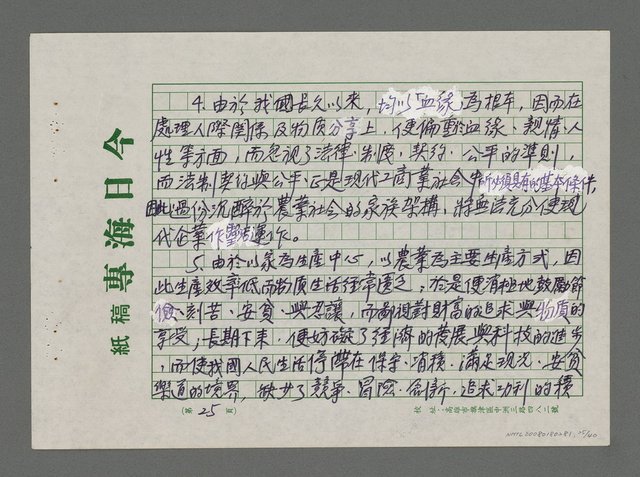 4.由於我國長久以來，均以「血緣」為根本，因而在
處理人際關係及物質分享上，便偏重血緣、親情、人
性等方面，而忽視了法律、制度、契約、公平的準則，
而法制契約與公平正是現代工商業社會中所必須具有的基本條件，
因此過份沉醉於農業社會的家族架構，將無法充分使現
代企業作靈活運作。
5.由於以家為生產中心，以農業為主要生產方式，因
此生產效率低而物質生活經常匱乏，於是便消極地鼓勵節
儉、刻苦、安貧、與忍讓，而鄙視對財富的追求與物質的
享受，長期下來，便妨礙了經濟的發展與科技的進步
，而使我國人民生活停滯在保守、消積、滿足現況、安貧
樂道的境界，缺少了競爭、冒險、創新、追求功利的積
今日海專
稿紙
（第25頁）
校址：高雄市旗津區中洲三路四八二號
NMTL20080180281, 25/40